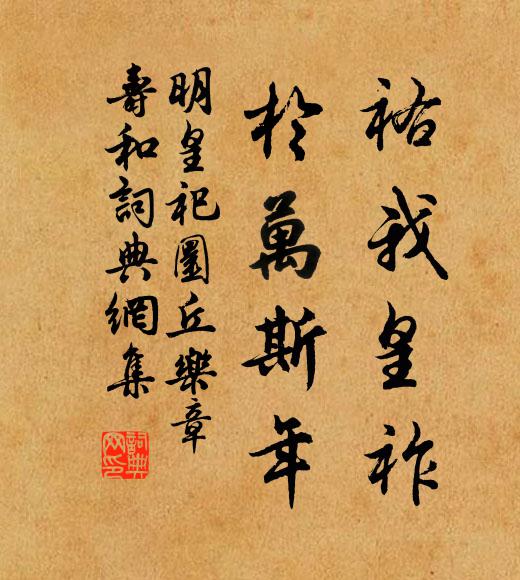 祐我皇祚
於萬斯年
明皇祀圜丘樂章
壽和詞典網集
詞典网印